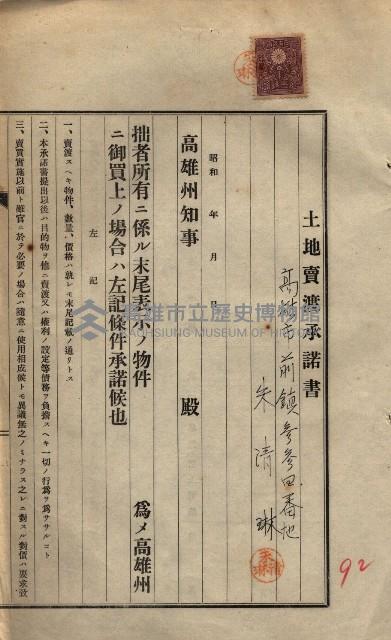 土地賣渡承諾書
高雄市前鎮參參四番地
朱清琳
昭和　年　月　日
高雄州知事　殿
拙者所有ニ係ル末尾表示ノ物件　爲メ高雄州
ニ御買上ノ場合ハ左記條件承諾候也
左記
一、賣渡スヘキ物件、數量、價格ハ孰レモ末尾記載ノ通リトス
二、本承諾書提出以後ハ目的物ヲ他ニ賣渡又ハ權利ノ設定等債務ヲ負擔スヘキ一切ノ行爲ヲ爲ササルコト
三、賣買實施以前ト雖官ニ於テ必要ノ場合ハ隨意ニ使用相成候トモ異議無之ノミナラス之レニ對スル對價ハ要求致
92
高雄市立歷史博物館
KAOHSIUNG MUSEUM OF HISTORY